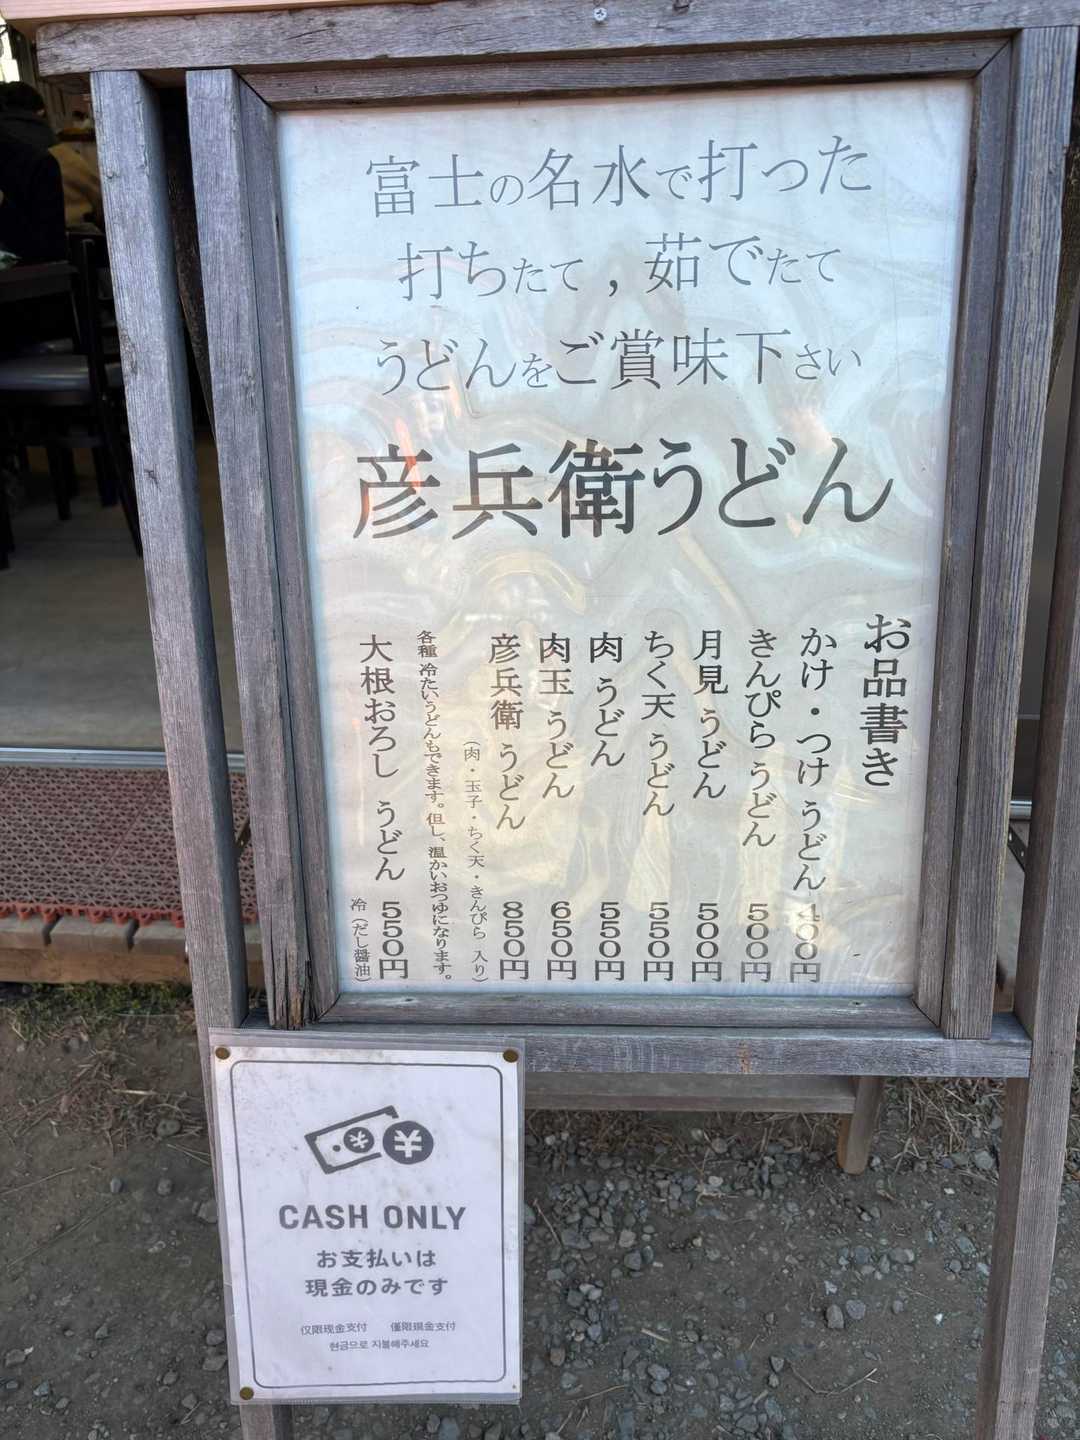 富士の名水で打った
打ちたて，茹でたて
うどんをご賞味下さい
彦兵衛うどん
お品書き
かけ・つけ うどん 400円
きんぴら うどん 500円
月見 うどん 500円
ちく天 うどん 550円
肉 うどん 550円
肉玉 うどん 650円
彦兵衛 うどん 850円
（肉・玉子・ちく天・きんぴら 入り）
各種 冷たいうどんもできます。但し、温かいおつゆになります。
大根おろし うどん 550円
冷（だし醤油）
CASH ONLY
お支払いは
現金のみです
仅限现金支付 僅限現金支付
현금으로 지불해주세요